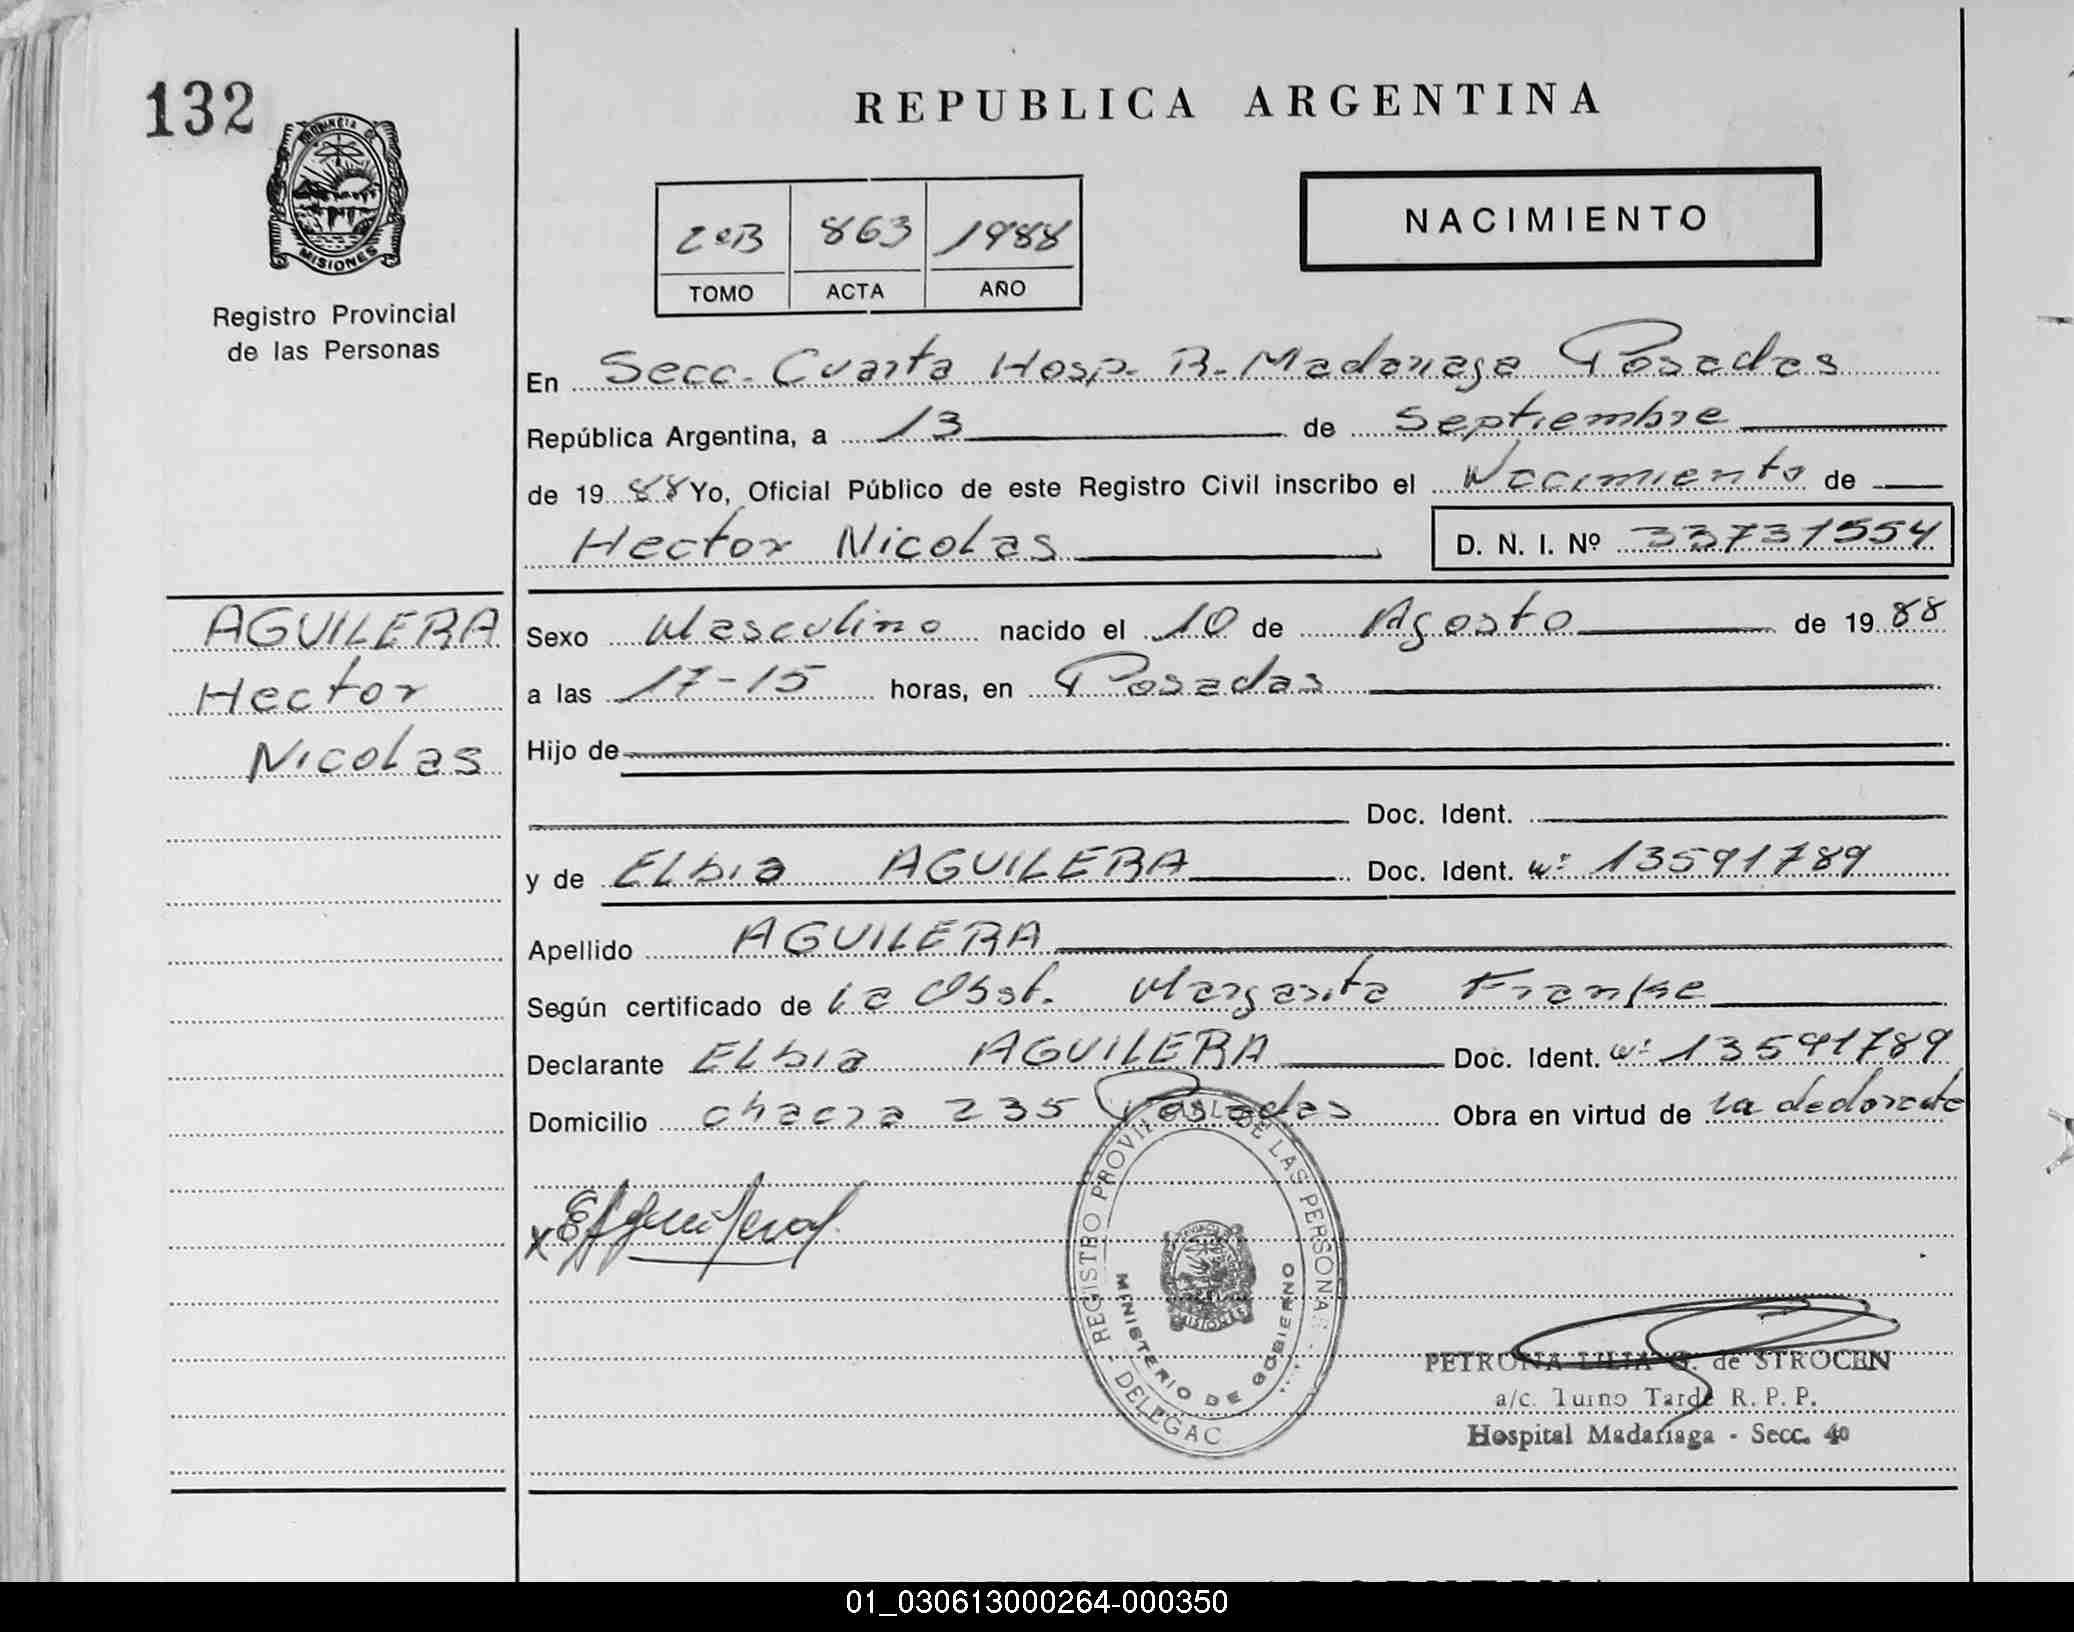 132
PROVINCIA DE
MISIONES
Registro Provincial
de las Personas
REPUBLICA ARGENTINA
NACIMIENTO
2ºB 863 1988
TOMO ACTA AÑO
En Secc. Cuarta Hosp. R. Madariaga Posadas
República Argentina, a 13 de Septiembre
de 1988 Yo, Oficial Público de este Registro Civil inscribo el Nacimiento de
Hector Nicolas D. N. I. Nº 33731554
AGUILERA
Hector
Nicolas
Sexo Masculino nacido el 10 de Agosto de 1988
a las 17-15 horas, en Posadas
Hijo de
Doc. Ident.
y de ELbia AGUILERA Doc. Ident. Nº 13591789
Apellido AGUILERA
Según certificado de La Obst. Margarita Franke
Declarante ELbia AGUILERA Doc. Ident. Nº 13591789
Domicilio chacra 235 Posadas Obra en virtud de la declarante
x EAguilera
REGISTRO PROVINCIAL DE LAS PERSONAS - DELEGAC
MINISTERIO DE GOBIERNO
MISIONES
PETRONA LILIA G. de STROCEN
a/c. Turno Tarde R. P. P.
Hospital Madariaga - Secc. 4º
01_030613000264-000350